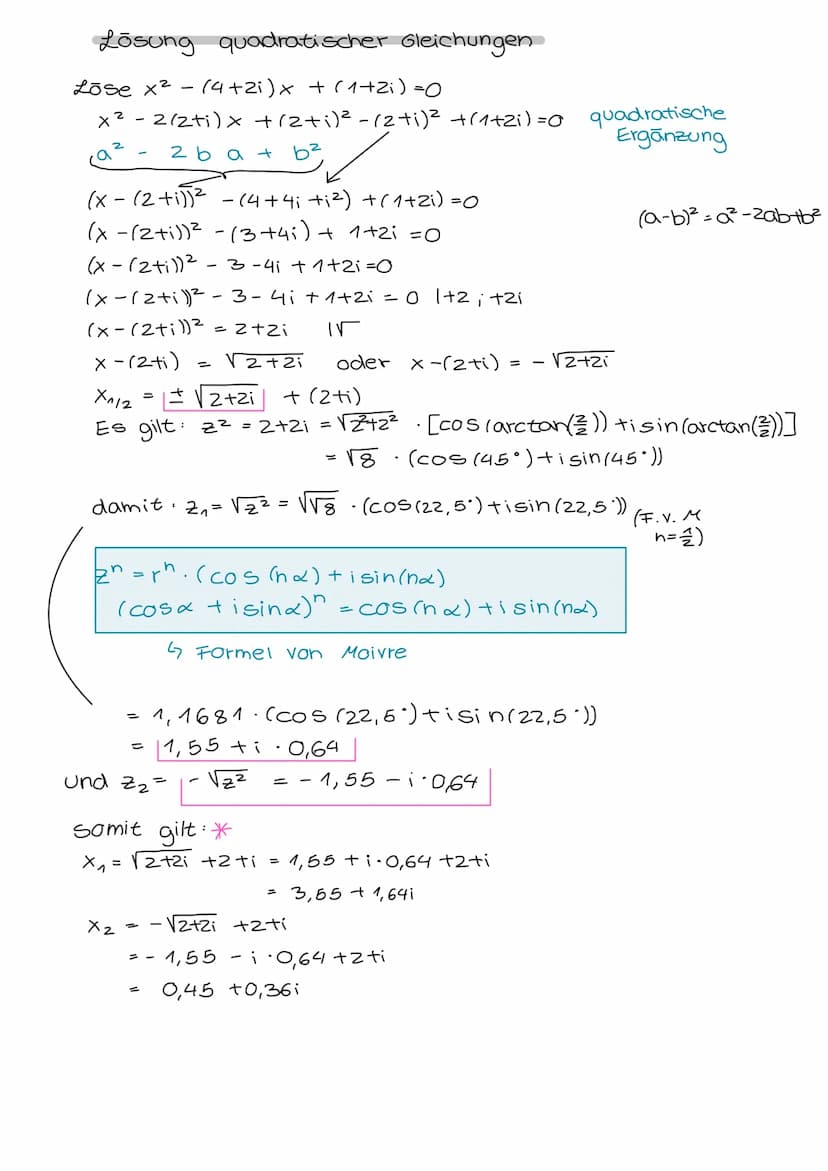 Lösung quadratischer Gleichungen
Löse x² - (4+2i)x + (1+2i) =0
x² - 2(2+i)x +(2+i)² -(2+i)² +(1+2i)=0 quadratische Ergänzung
a² - 2 b a + b²
(x - (2+i))² -(4+4i +i²) +(1+2i)=0
(a-b)² = a²-2ab+b²
(x -(2+i))² -(3+4i) + 1+2i =0
(x-(2+i))² - 3 -4i +1+2i=0
(x-(2+i))² - 3 - 4i +1+2i = 0 |+2 ; +2i
(x-(2+i))² = 2+2i |√
x-(2+i) = √2+2i oder x-(2+i) = - √2+2i
x₁/₂ = ± √2+2i + (2+i)
Es gilt: z² = 2+2i = √2²+2² · [cos(arctan(2/2)) +i sin(arctan(2/2))]
= √8 · (cos(45°)+i sin(45°))
damit: z₁ = √z² = √√8 · (cos(22,5°)+i sin(22,5°)) (F.v. M n=1/2)
zⁿ = rⁿ · (cos(nα)+i sin(nα)
(cosα + i sinα)ⁿ = cos(nα)+i sin(nα)
↳ Formel von Moivre
= 1,1681 · (cos(22,5°)+i sin(22,5°))
= 1,55 + i · 0,64
und z₂ = - √z² = - 1,55 - i · 0,64
somit gilt: *
x₁ = √2+2i +2+i = 1,55 + i · 0,64 +2+i
= 3,55 + 1,64i
x₂ = -√2+2i +2+i
= - 1,55 - i · 0,64 +2+i
= 0,45 +0,36i